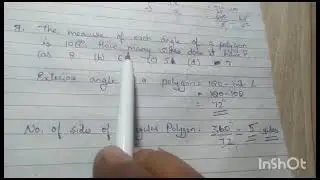 The measure of each angle of a polygon
is 108°. How many sides does it have?
(a) 8 (b) 6 (c) 5 (d) 7
Exterior angle a polygon = 180 - int. L
= 180-108
= 72°
No. of side of Regular Polygon. 360 = 5 sides
72
InShOt